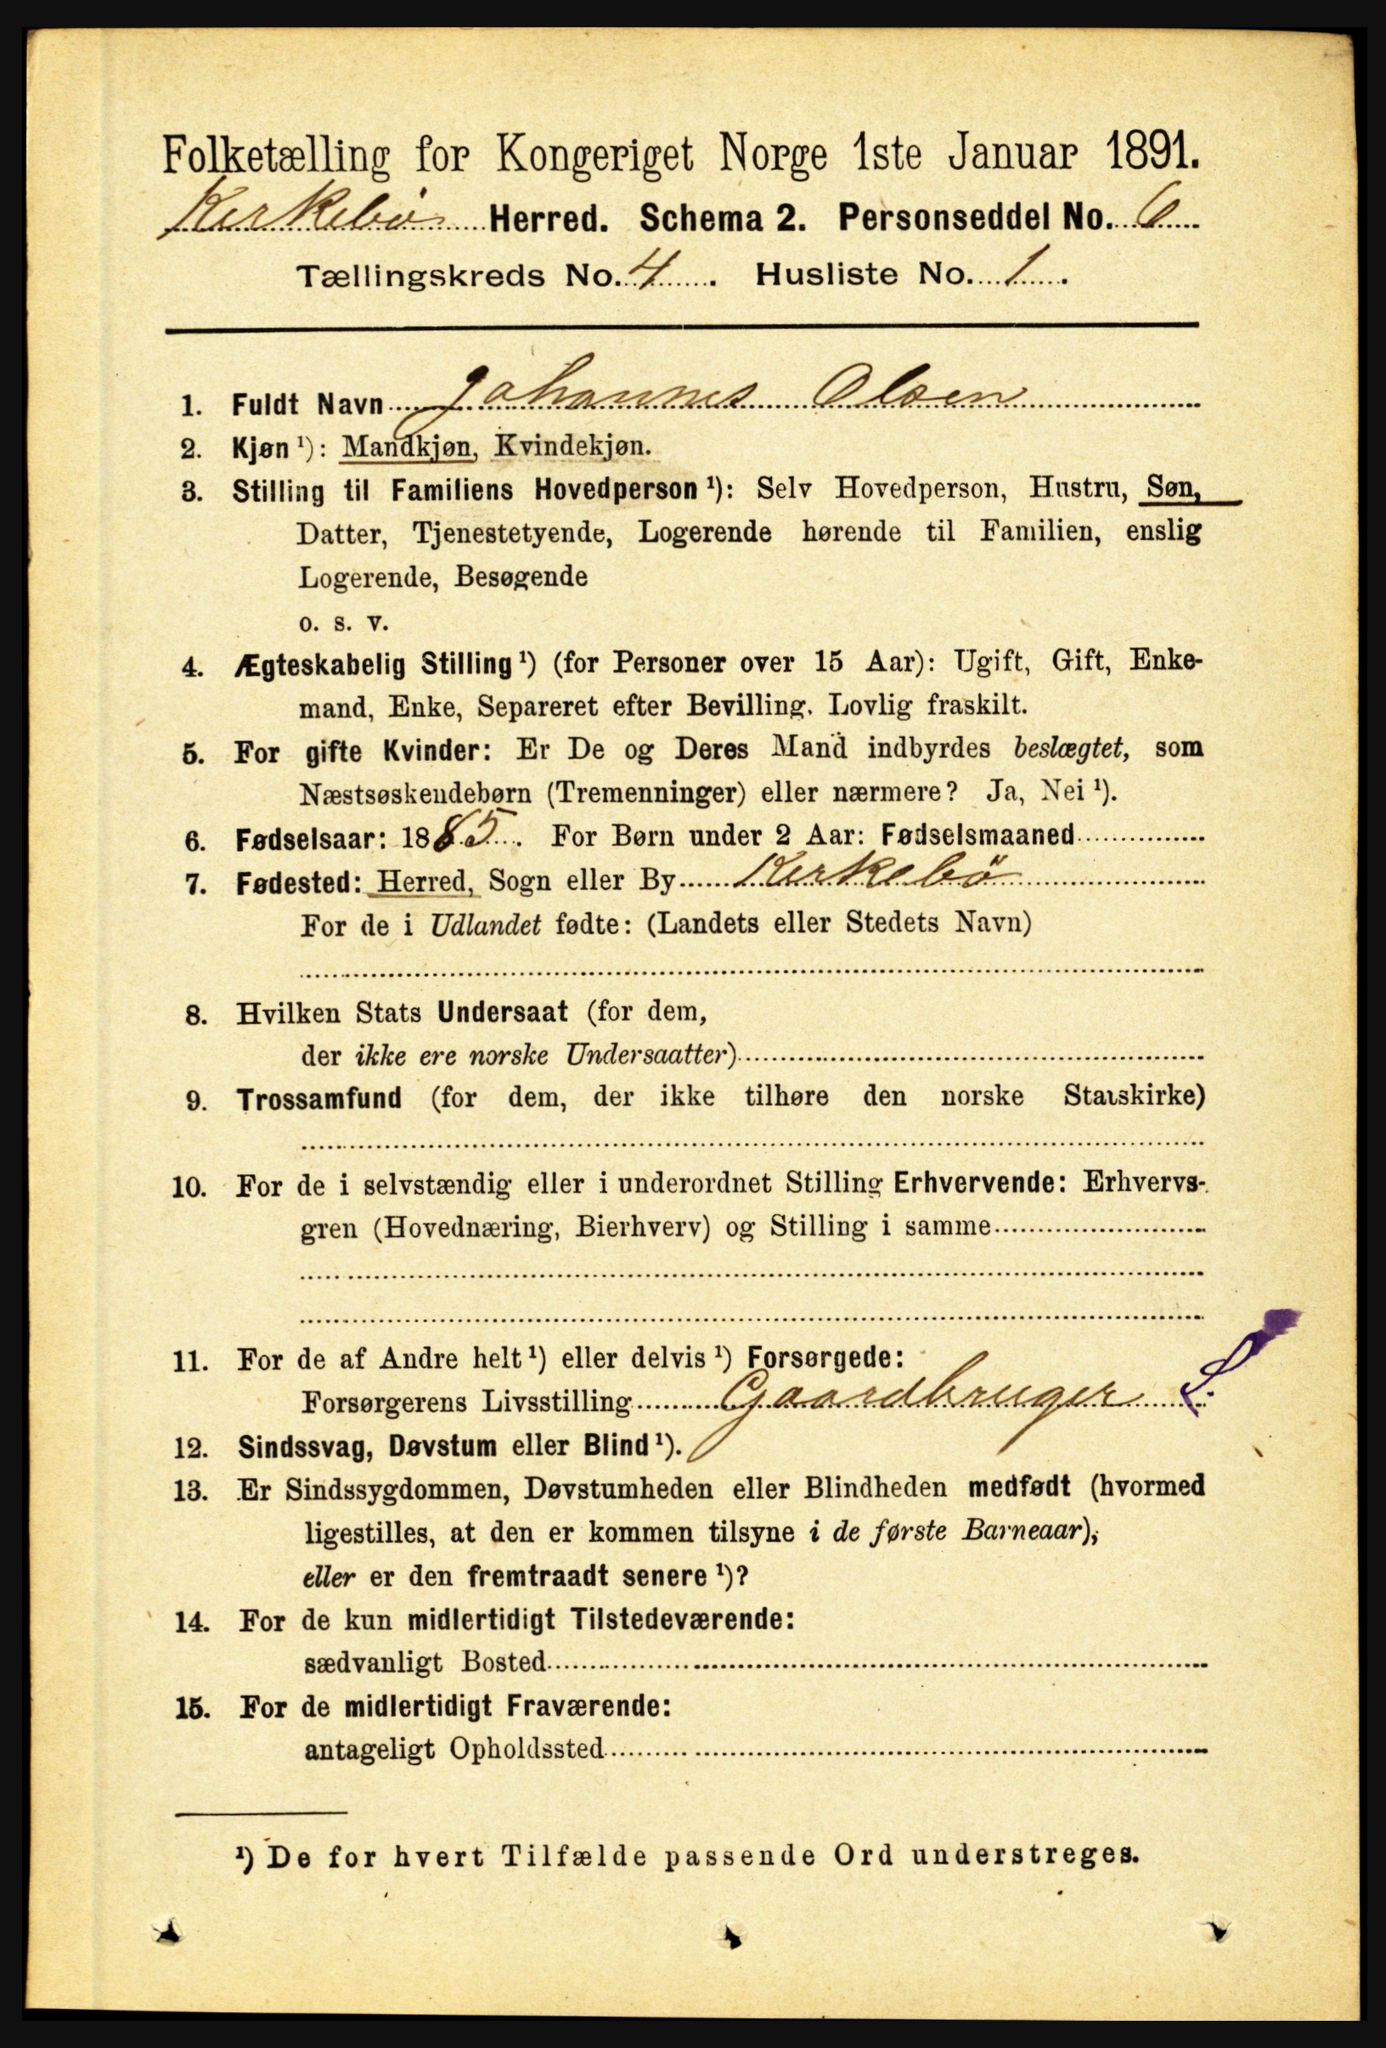 Folketælling for Kongeriget Norge 1ste Januar 1891.
Kirkebø Herred. Schema 2. Personseddel No. 6
Tællingskreds No. 4. Husliste No. 1.
1. Fuldt Navn Johannes Olsen
2. Kjøn ¹): Mandkjøn, Kvindekjøn.
3. Stilling til Familiens Hovedperson ¹): Selv Hovedperson, Hustru, Søn,
Datter, Tjenestetyende, Logerende hørende til Familien, enslig
Logerende, Besøgende
o. s. v.
4. Ægteskabelig Stilling ¹) (for Personer over 15 Aar): Ugift, Gift, Enke-
mand, Enke, Separeret efter Bevilling. Lovlig fraskilt.
5. For gifte Kvinder: Er De og Deres Mand indbyrdes beslægtet, som
Næstsøskendebørn (Tremenninger) eller nærmere? Ja, Nei ¹).
6. Fødselsaar: 1885. For Børn under 2 Aar: Fødselsmaaned
7. Fødested: Herred, Sogn eller By Kirkebø
For de i Udlandet fødte: (Landets eller Stedets Navn)
8. Hvilken Stats Undersaat (for dem,
der ikke ere norske Undersaatter)
9. Trossamfund (for dem, der ikke tilhøre den norske Statskirke)
10. For de i selvstændig eller i underordnet Stilling Erhvervende: Erhvervs-
gren (Hovednæring, Bierhverv) og Stilling i samme
11. For de af Andre helt ¹) eller delvis ¹) Forsørgede:
Forsørgerens Livsstilling Gaardbruger S.
12. Sindssvag, Døvstum eller Blind ¹).
13. Er Sindssygdommen, Døvstumheden eller Blindheden medfødt (hvormed
ligestilles, at den er kommen tilsyne i de første Barneaar),
eller er den fremtraadt senere ¹)?
14. For de kun midlertidigt Tilstedeværende:
sædvanligt Bosted
15. For de midlertidigt Fraværende:
antageligt Opholdssted
¹) De for hvert Tilfælde passende Ord understreges.